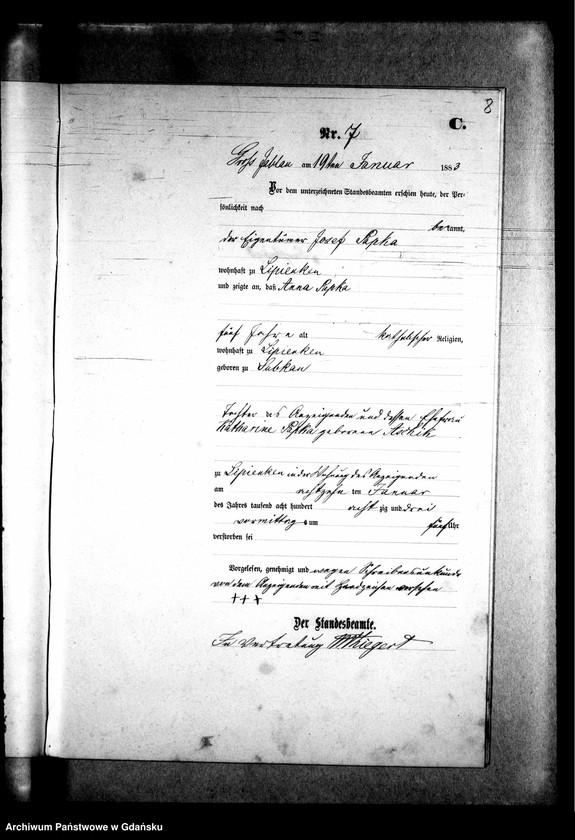 8
C.
Nr. 7
Gross Jablau am 19ten Januar 1883
Vor dem unterzeichneten Standesbeamten erschien heute, der Per-
sönlichkeit nach
bekannt,
der Eigentümer Josef Papka
wohnhaft zu Lipienken
und zeigte an, daß Anna Papka
fünf Jahre alt katholischer Religion,
wohnhaft zu Lipienken
geboren zu Subkau
Tochter des Anzeigenden und dessen Ehefrau
Katharine Papka geborene
zu Lipienken in der Wohnung des Anzeigenden
am achtzehn ten Januar
des Jahres tausend acht hundert acht zig und drei
vormittags um fünf Uhr
verstorben sei
Vorgelesen, genehmigt und wegen Schreibensunkunde
von dem Anzeigenden mit Handzeichen versehen
+++
Der Standesbeamte.
In Vertretung
Archiwum Państwowe w Gdańsku